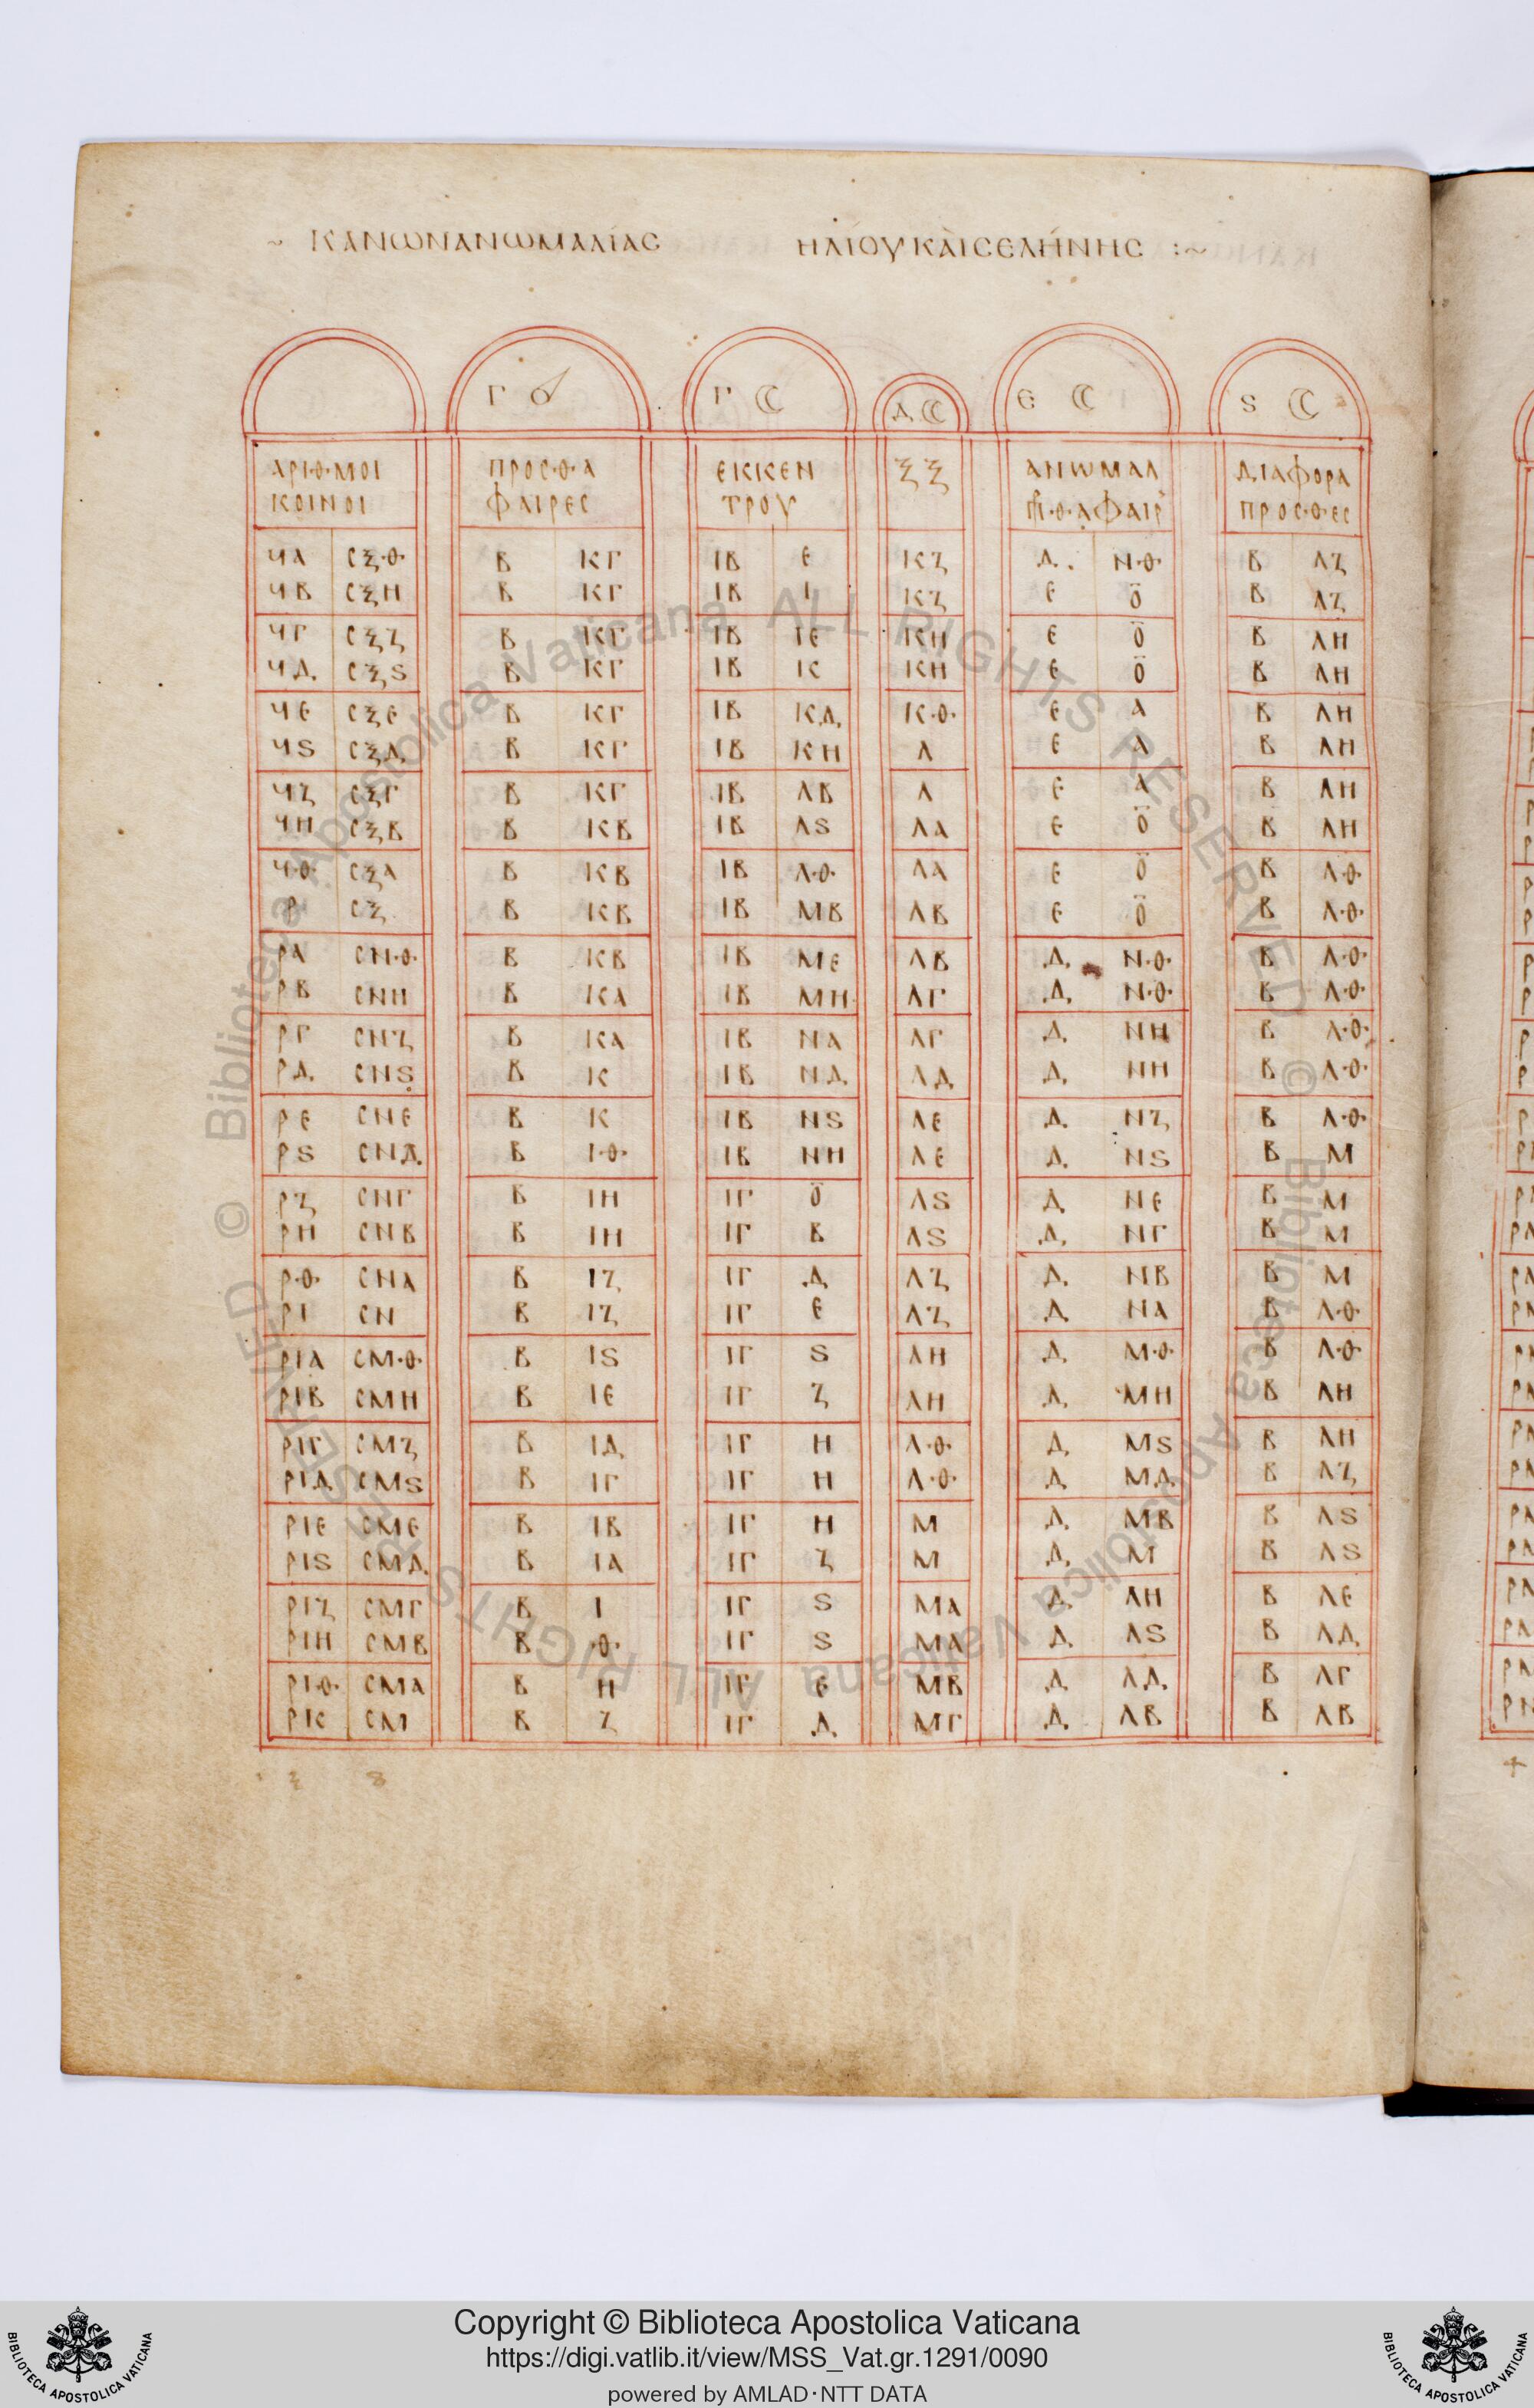 ~ ΚΑΝΩΝΑΝΩΜΑΛΙΑΣ ΗΛΙΟΥΚΑΙΣΕΛΗΝΗΣ :~
Γ ☌ Γ ☾ Δ ☾ Ε ☾ Ϛ ☾
ΑΡΙΘΜΟΙ ΠΡΟΣΘΑ ΕΚΚΕΝ ΞΞ ΑΝΩΜΑΛ ΔΙΑΦΟΡΑ
ΚΟΙΝΟΙ ΦΑΙΡΕΣ ΤΡΟΥ ΘΑΦΑΙΡ ΠΡΟΣΘΕΣ
ϞΑ ΣΞΘ Β ΚΓ ΙΒ Ε ΚΖ Δ ΝΘ Β ΛΖ
ϞΒ ΣΞΗ Β ΚΓ ΙΒ Ι ΚΖ Ε Ο Β ΛΖ
ϞΓ ΣΞΖ Β ΚΓ ΙΒ ΙΕ ΚΗ Ε Ο Β ΛΗ
ϞΔ ΣΞϚ Β ΚΓ ΙΒ Κ ΚΗ Ε Ο Β ΛΗ
ϞΕ ΣΞΕ Β ΚΓ ΙΒ ΚΔ ΚΘ Ε Α Β ΛΗ
ϞϚ ΣΞΔ Β ΚΓ ΙΒ ΚΗ Λ Ε Α Β ΛΗ
ϞΖ ΣΞΓ Β ΚΓ ΙΒ ΛΒ Λ Ε Α Β ΛΗ
ϞΗ ΣΞΒ Β ΚΒ ΙΒ ΛϚ ΛΑ Ε Ο Β ΛΗ
ϞΘ ΣΞΑ Β ΚΒ ΙΒ ΛΘ ΛΑ Ε Ο Β ΛΘ
Ρ ΣΞ Β ΚΒ ΙΒ ΜΒ ΛΒ Ε Ο Β ΛΘ
ΡΑ ΣΝΘ Β ΚΒ ΙΒ ΜΕ ΛΒ Δ ΝΘ Β ΛΘ
ΡΒ ΣΝΗ Β ΚΑ ΙΒ ΜΗ ΛΓ Δ ΝΘ Β ΛΘ
ΡΓ ΣΝΖ Β ΚΑ ΙΒ ΝΑ ΛΓ Δ ΝΗ Β ΛΘ
ΡΔ ΣΝϚ Β Κ ΙΒ ΝΔ ΛΔ Δ ΝΗ Β ΛΘ
ΡΕ ΣΝΕ Β Κ ΙΒ ΝϚ ΛΕ Δ ΝΖ Β ΛΘ
ΡϚ ΣΝΔ Β ΙΘ ΙΒ ΝΗ ΛΕ Δ ΝϚ Β Μ
ΡΖ ΣΝΓ Β ΙΗ ΙΓ Ο ΛϚ Δ ΝΕ Β Μ
ΡΗ ΣΝΒ Β ΙΗ ΙΓ Β ΛϚ Δ ΝΓ Β Μ
ΡΘ ΣΝΑ Β ΙΖ ΙΓ Δ ΛΖ Δ ΝΒ Β Μ
ΡΙ ΣΝ Β ΙΖ ΙΓ Ε ΛΖ Δ ΝΑ Β ΛΘ
ΡΙΑ ΣΜΘ Β ΙϚ ΙΓ Ϛ ΛΗ Δ ΜΘ Β ΛΘ
ΡΙΒ ΣΜΗ Β ΙΕ ΙΓ Ζ ΛΗ Δ ΜΗ Β ΛΗ
ΡΙΓ ΣΜΖ Β ΙΔ ΙΓ Η ΛΘ Δ ΜϚ Β ΛΗ
ΡΙΔ ΣΜϚ Β ΙΓ ΙΓ Η ΛΘ Δ ΜΔ Β ΛΖ
ΡΙΕ ΣΜΕ Β ΙΒ ΙΓ Η Μ Δ ΜΒ Β ΛϚ
ΡΙϚ ΣΜΔ Β ΙΑ ΙΓ Ζ Μ Δ Μ Β ΛϚ
ΡΙΖ ΣΜΓ Β Ι ΙΓ Ϛ ΜΑ Δ ΛΗ Β ΛΕ
ΡΙΗ ΣΜΒ Β Θ ΙΓ Ϛ ΜΑ Δ ΛϚ Β ΛΔ
ΡΙΘ ΣΜΑ Β Η ΙΓ Ε ΜΒ Δ ΛΔ Β ΛΓ
ΡΚ ΣΜ Β Ζ ΙΓ Δ ΜΓ Δ ΛΒ Β ΛΒ
© Biblioteca Apostolica Vaticana ALL RIGHTS RESERVED
© Biblioteca Apostolica Vaticana ALL RIGHTS RESERVED
BIBLIOTECA APOSTOLICA VATICANA
Copyright © Biblioteca Apostolica Vaticana
https://digi.vatlib.it/view/MSS_Vat.gr.1291/0090
powered by AMLAD·NTT DATA
BIBLIOTECA APOSTOLICA VATICANA